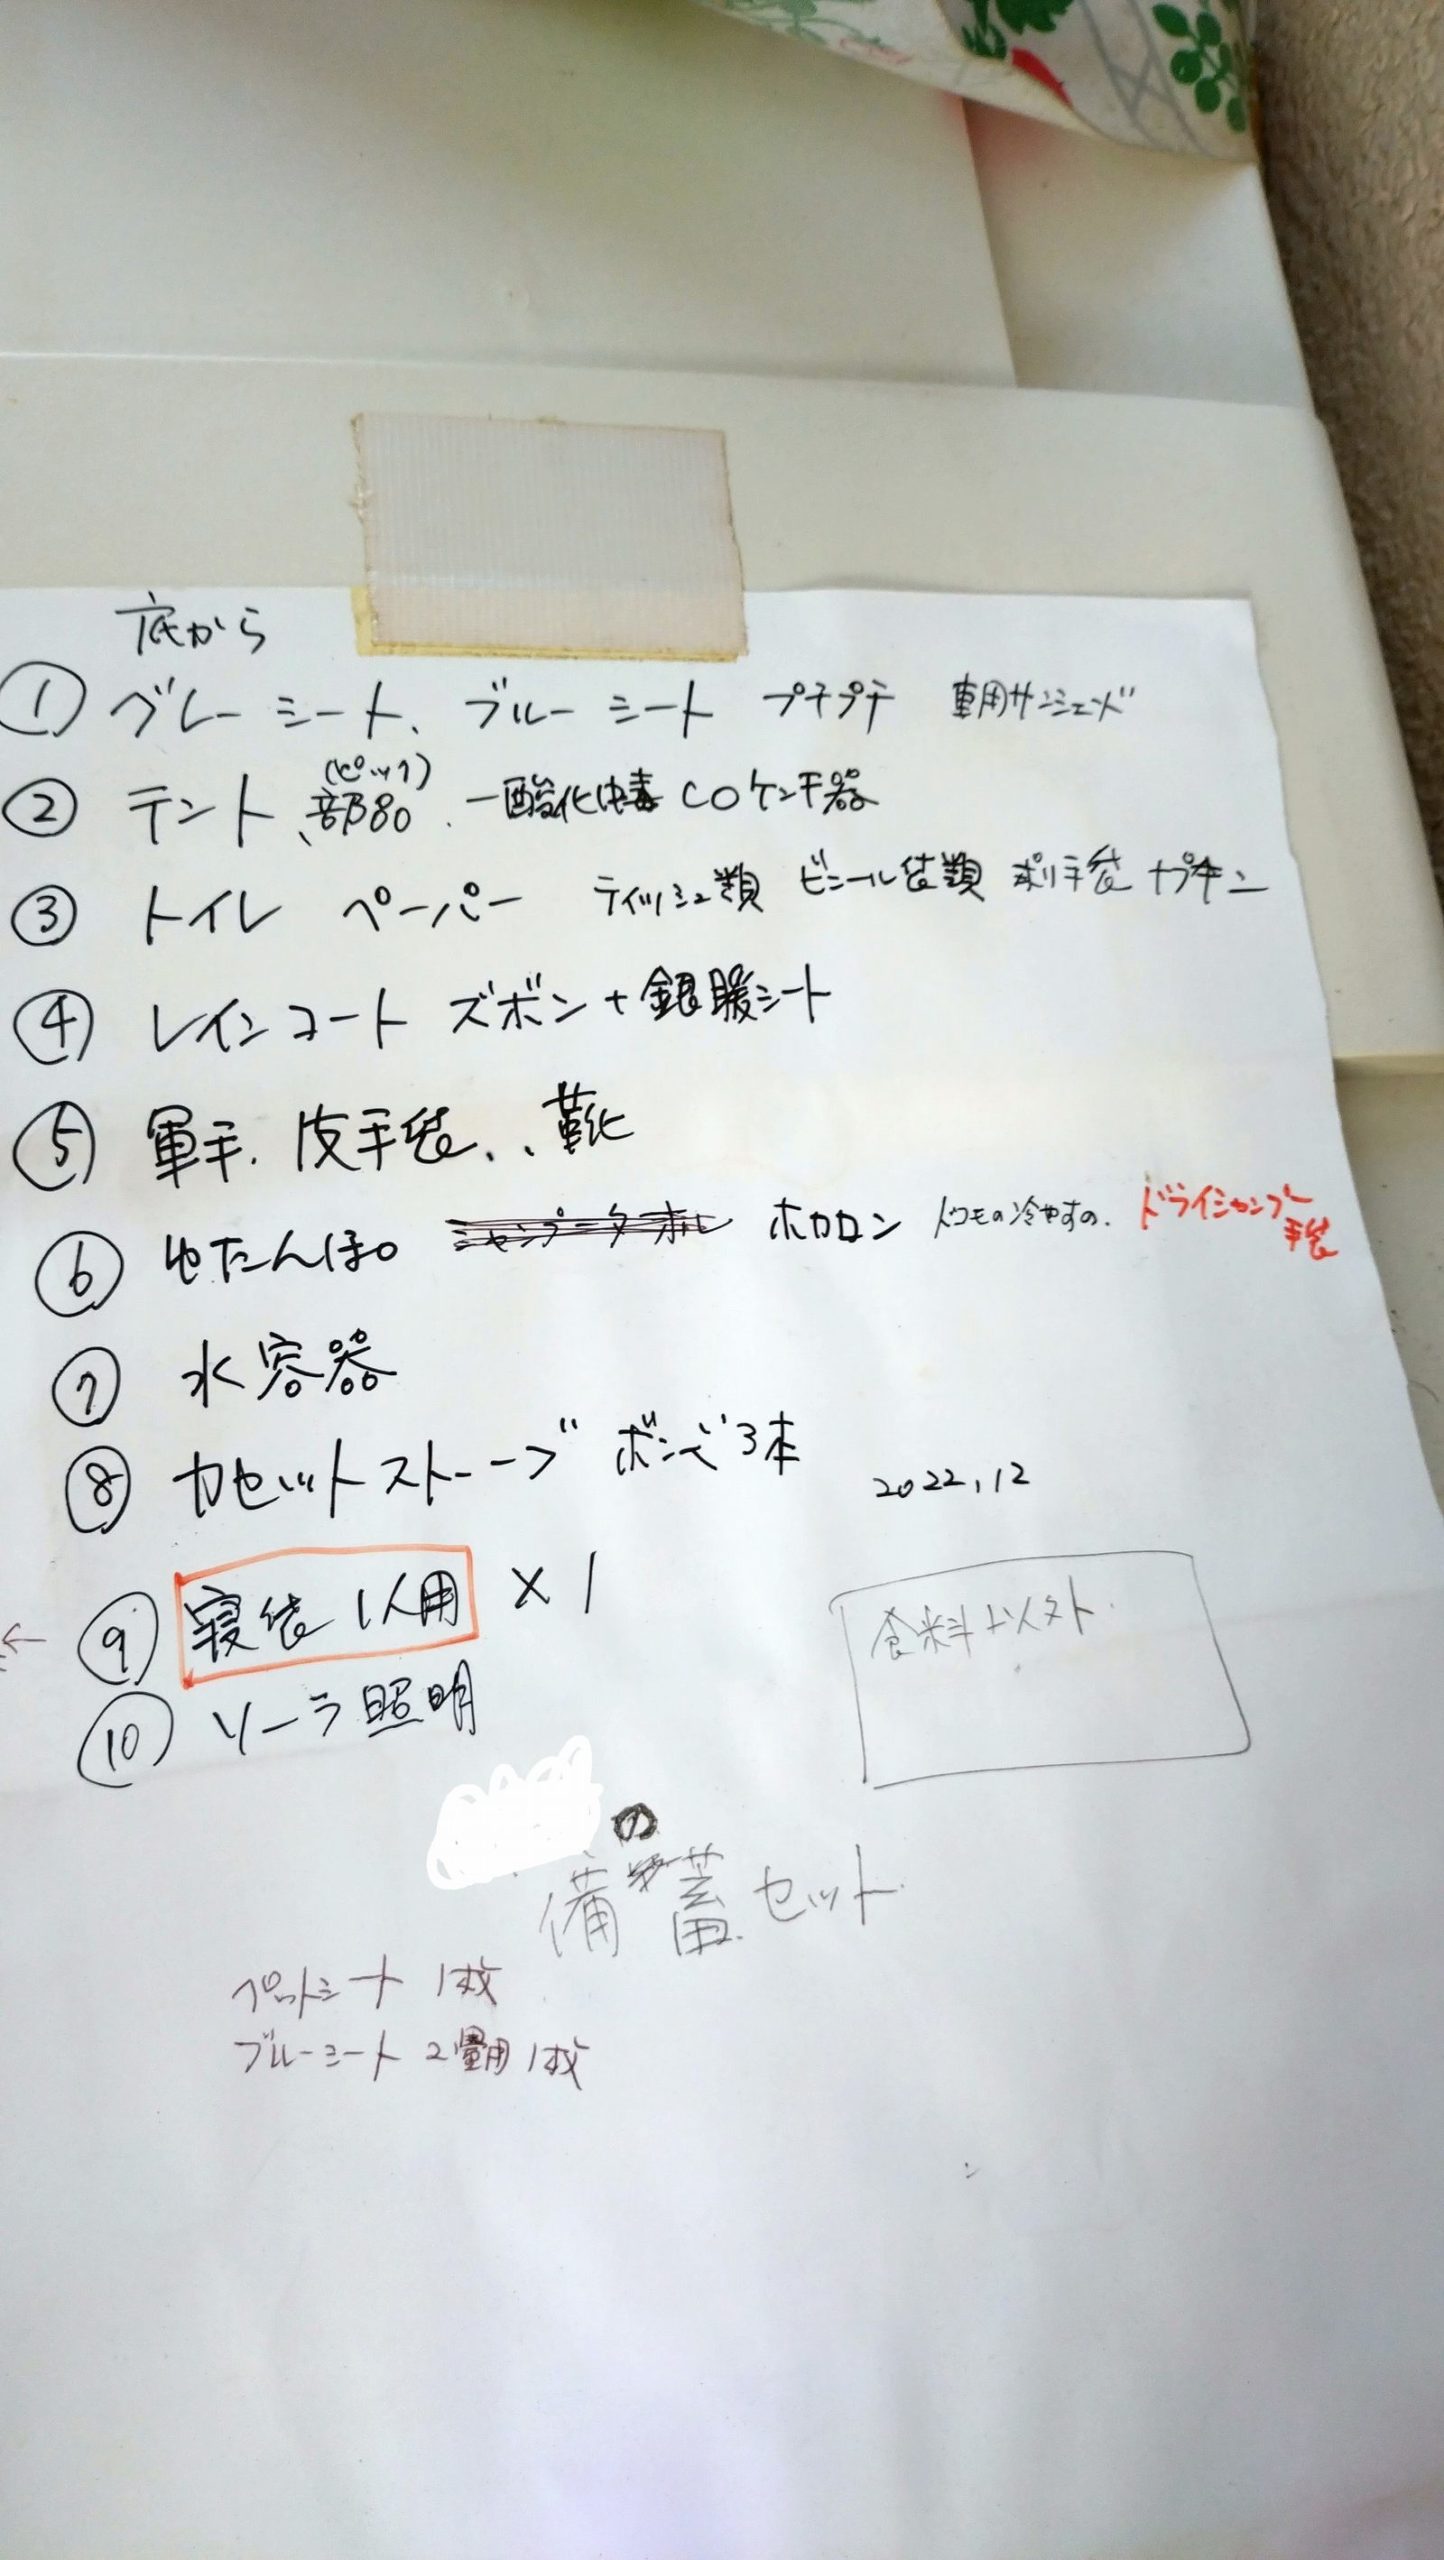 底から
① グレーシート、ブルーシート プチプチ 車用サンシェード
(ピック)
② テント、部80、一酸化中毒 COケンチ器
③ トイレ ペーパー ティッシュ類 ビニール袋類 ポリ手袋 ナプキン
④ レインコート ズボン+銀暖シート
⑤ 軍手、皮手袋、、靴
⑥ ゆたんぽ シャンプータオル ホカロン 冷やすの、ドライシャンプー
手袋
⑦ 水容器
⑧ カセットストーブ ボンベ3本
2022.12
⑨ 寝袋1人用 ×1
食料以外
⑩ ソーラ照明
の
備蓄セット
ペットシート 1枚
ブルーシート 2畳用1枚